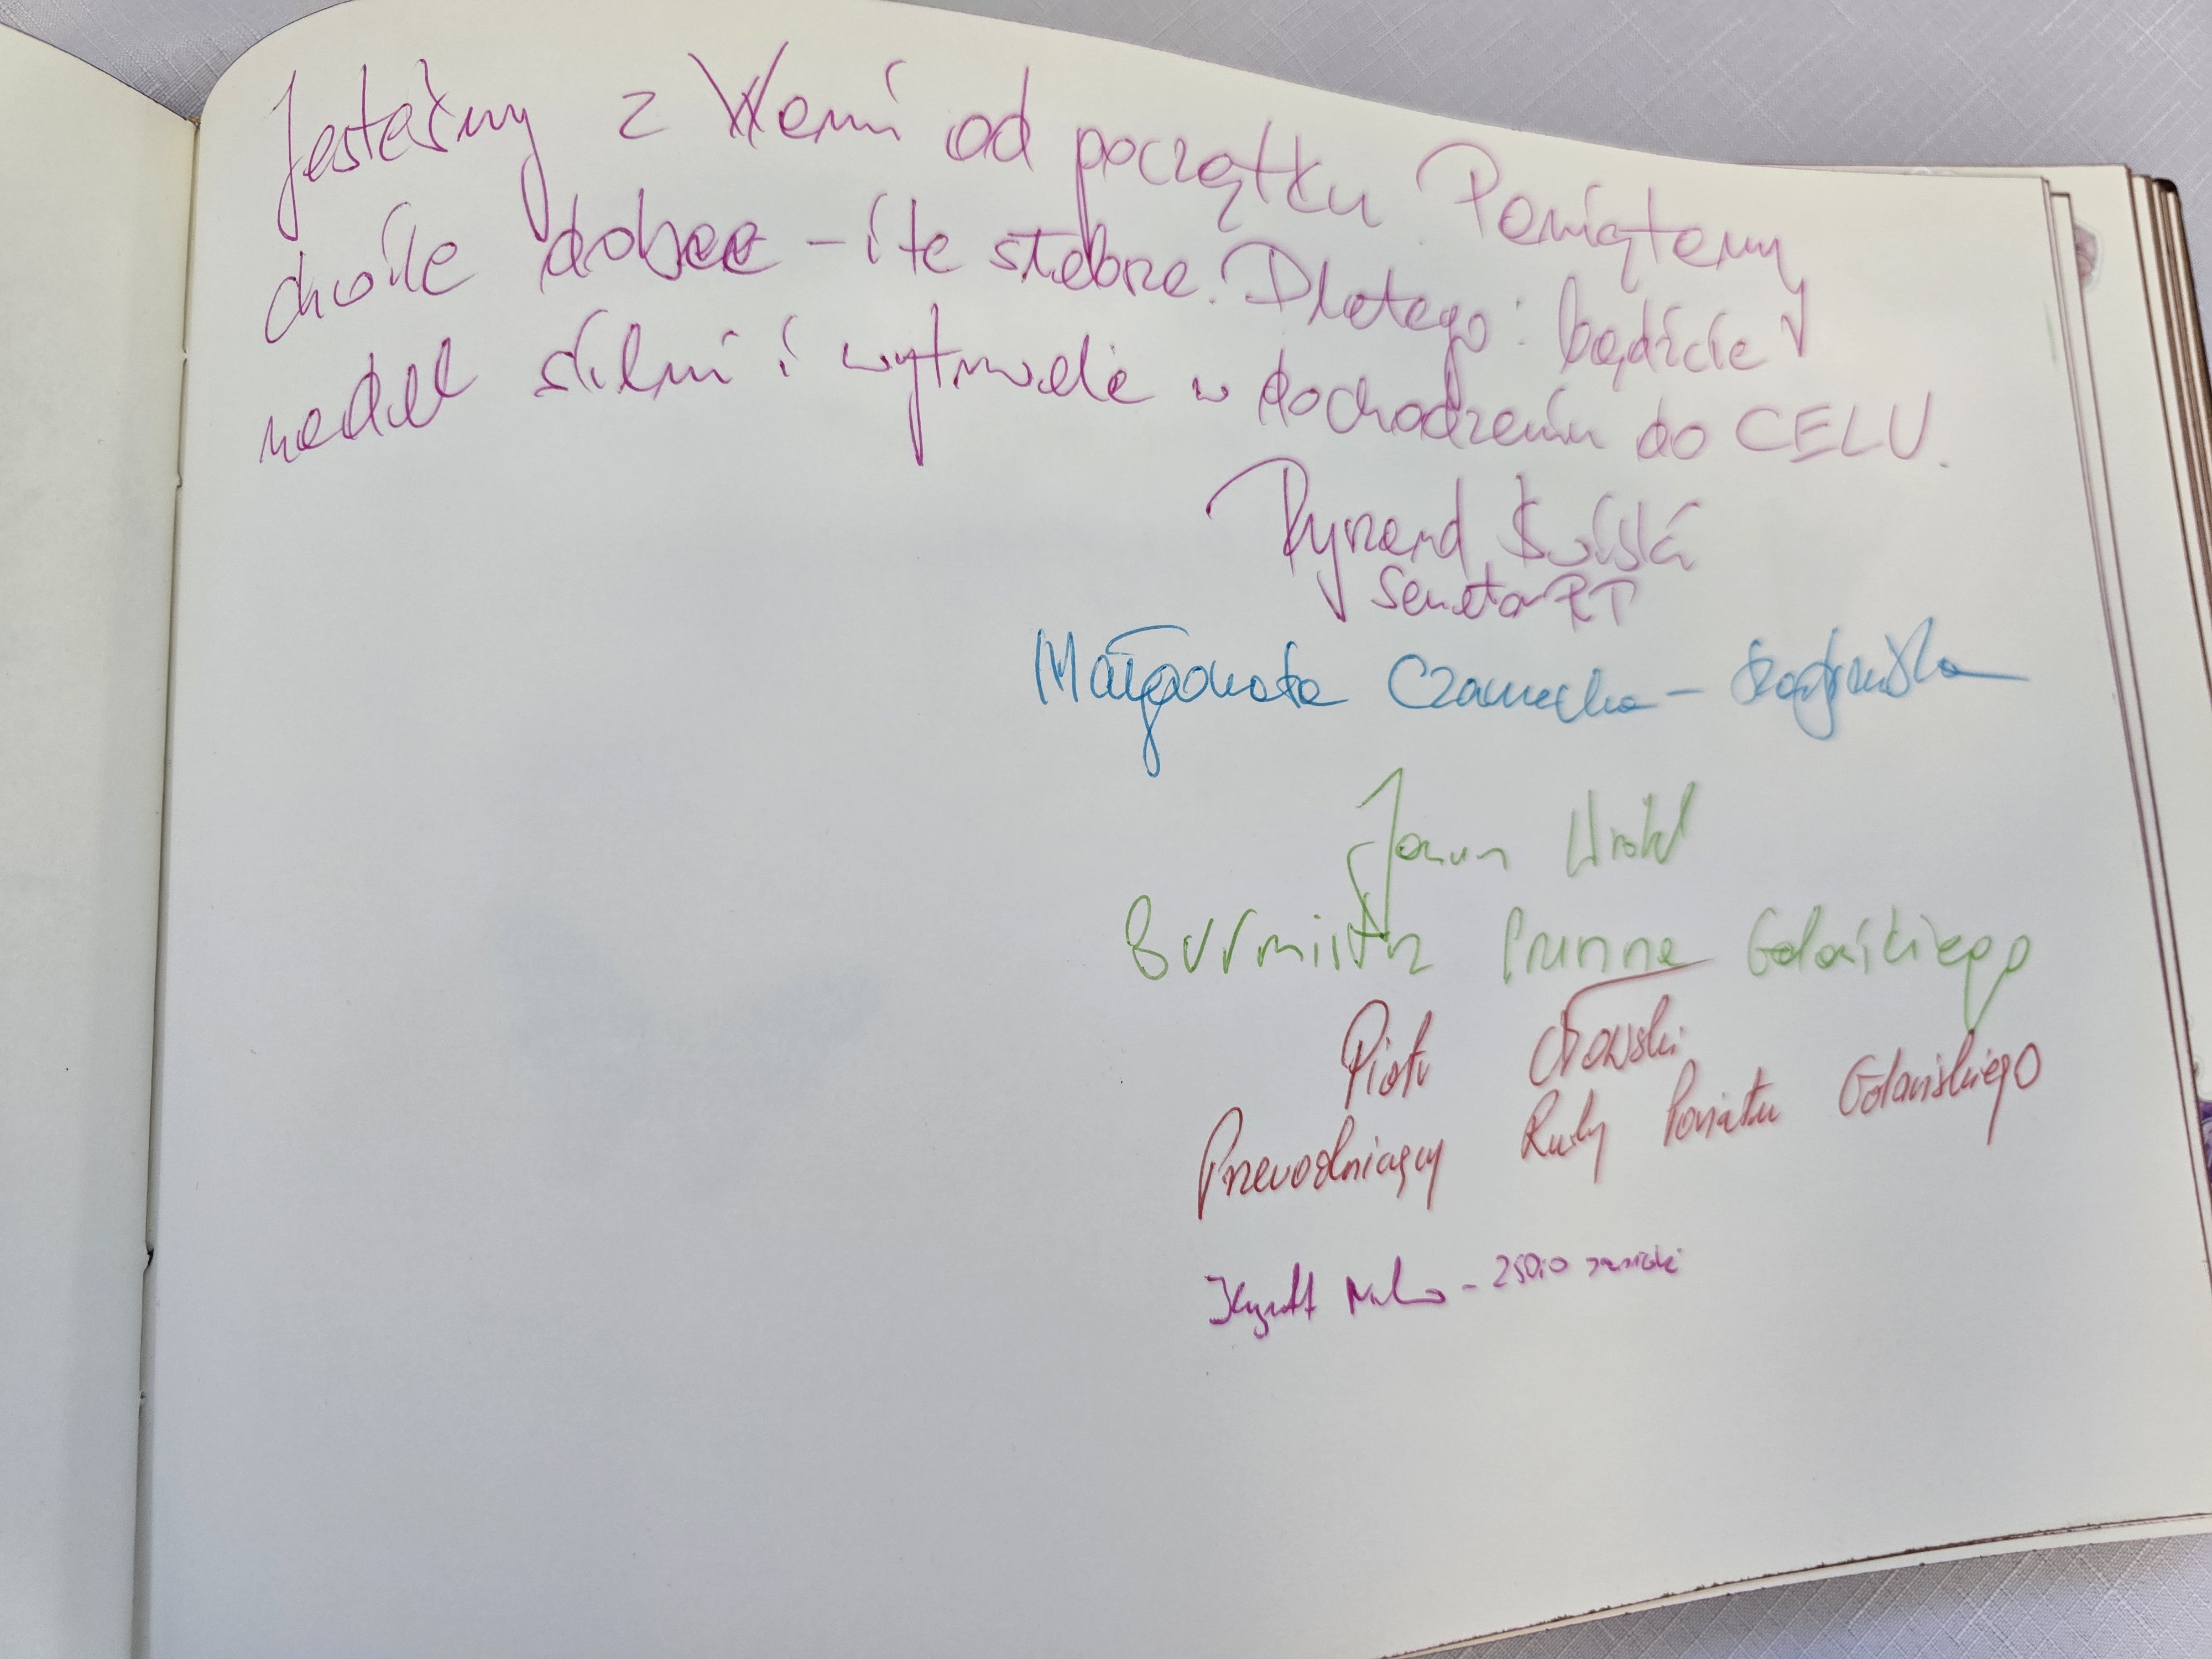 Jesteśmy z Wami od początku. Pamiętamy
chwile dobre – i te słabsze. Dlatego: bądźcie
nadal silni i wytrwali w dochodzeniu do CELU.
Ryszard Świlski
Senator RP
Małgorzata Czarnecka-Szafrańska
Janusz Wróbel
Burmistrz Pruszcza Gdańskiego
Piotr Ołowski
Przewodniczący Rady Powiatu Gdańskiego